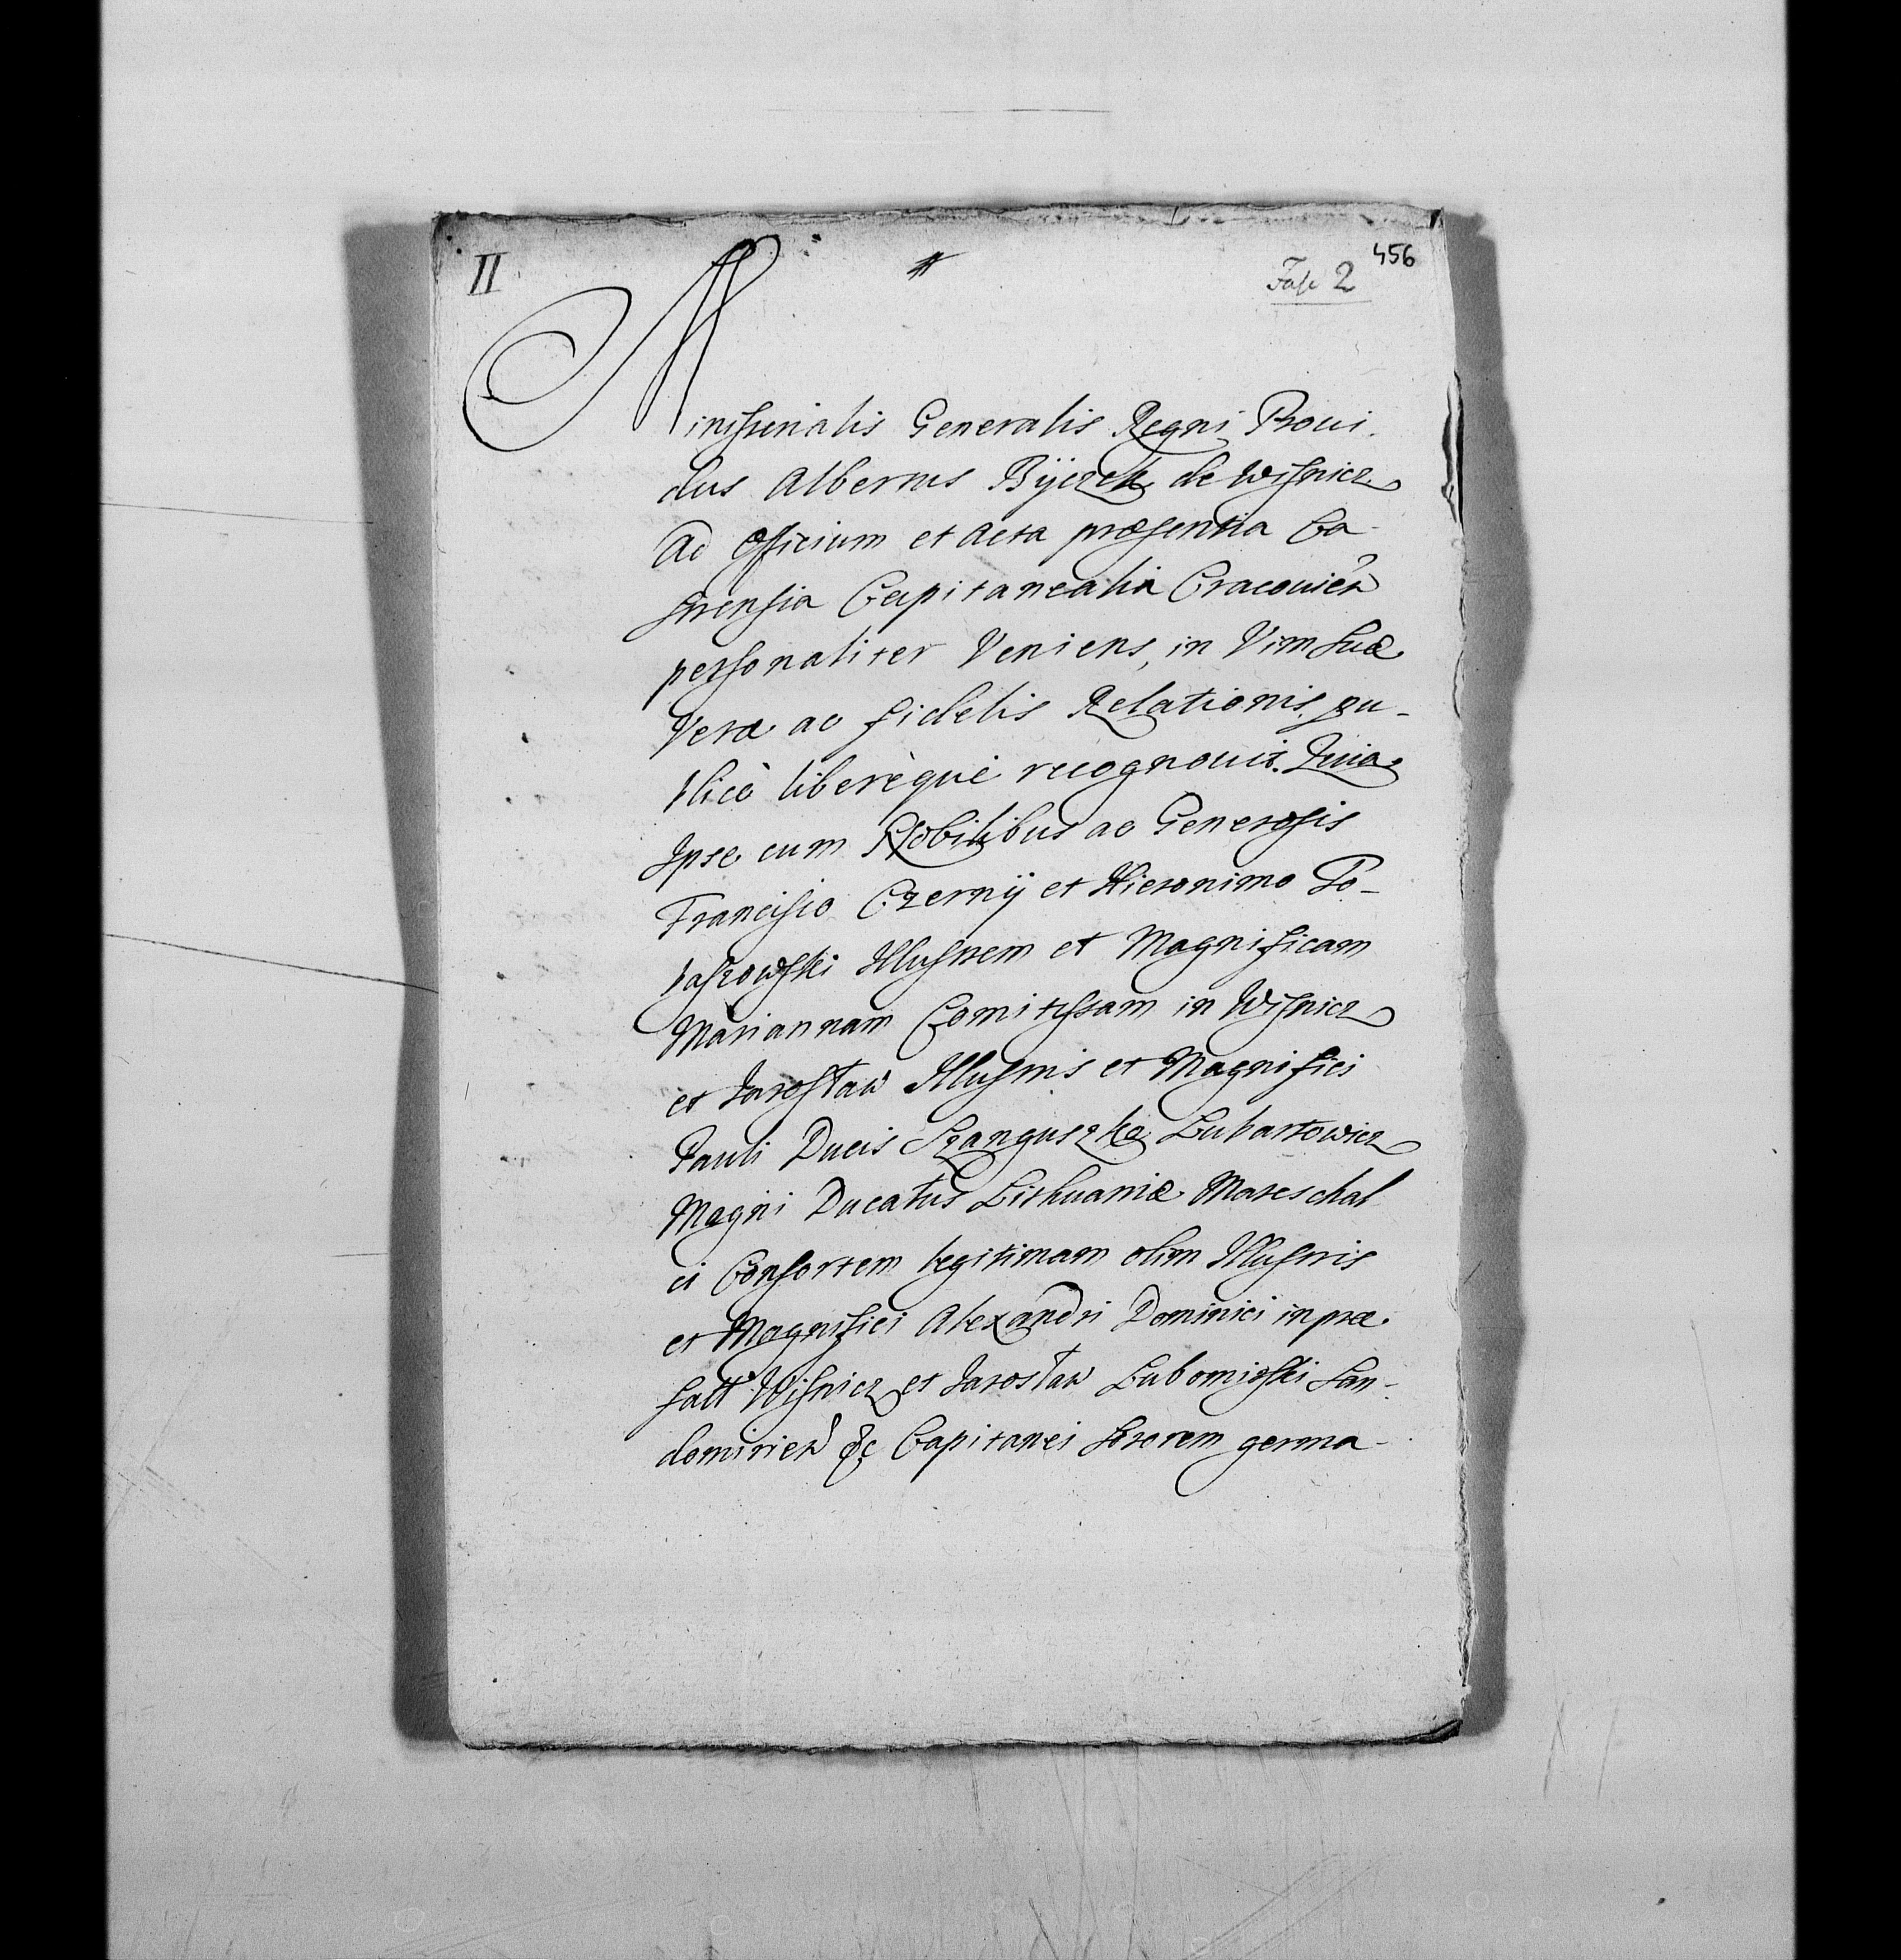 II
456
Fasc 2
Ministerialis Generalis Regni Provi-
dus Albertus Byczek de Wisnicz
Ad Officium et Acta præsentia Ca-
strensia Capitanealia Cracovień
personaliter Veniens, in Vim suæ
Veræ ac fidelis Relationis, pu-
blicè liberèque recognovit. Quia
Ipse cum Nobilibus ac Generosis
Francisco Czerny et Hieronimo Po-
Illustrem et Magnificam
Mariannam Comitissam in Wisnicz
et Jarosław Illustris et Magnifici
Pauli Ducis Szanguszko Lubartowicz
Magni Ducatus Lithuaniæ Mareschal
ci Consortem legitimam olim Illustris
et Magnifici Alexandri Dominici in præ-
fatt Wisnicz et Jarosław Lubomirski San-
domirień &c Capitanei Sororem germa-